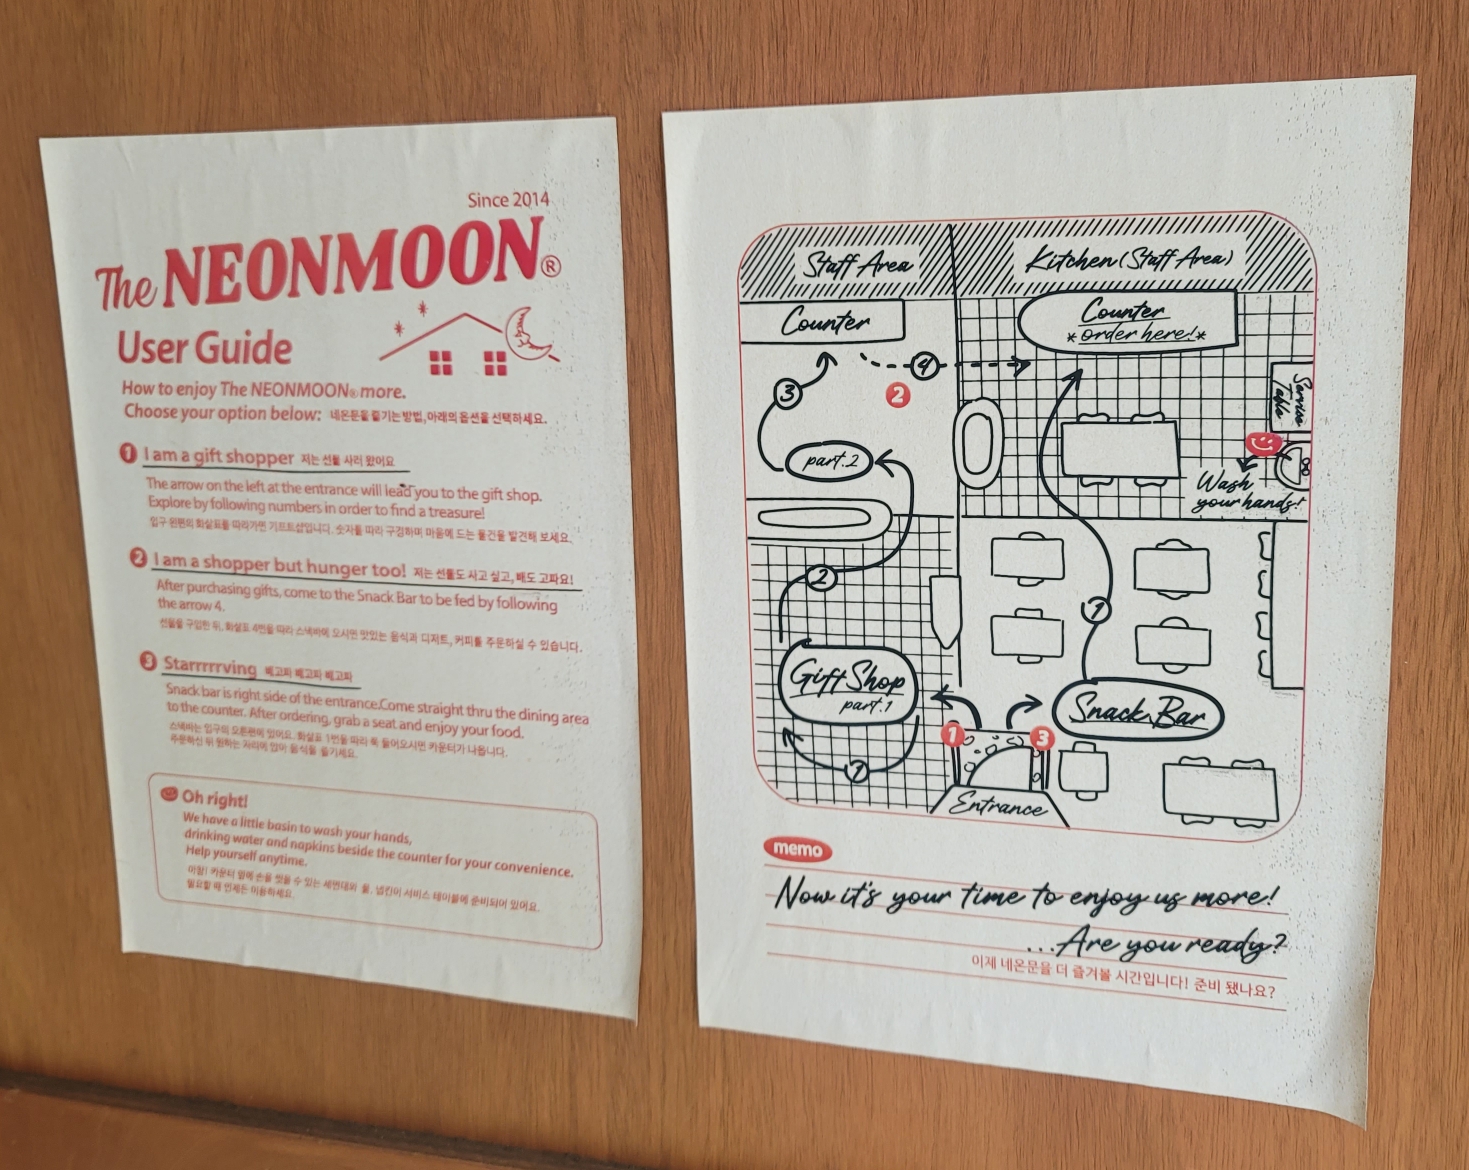 Since 2014
The NEONMOON®
User Guide
How to enjoy The NEONMOON® more.
Choose your option below: 네온문을 즐기는 방법, 아래의 옵션을 선택하세요.
1 I am a gift shopper 저는 선물 사러 왔어요
The arrow on the left at the entrance will lead you to the gift shop.
Explore by following numbers in order to find a treasure!
입구 왼편의 화살표를 따라가면 기프트샵입니다. 숫자를 따라 구경하며 마음에 드는 물건을 발견해 보세요.
2 I am a shopper but hunger too! 저는 선물도 사고 싶고, 배도 고파요!
After purchasing gifts, come to the Snack Bar to be fed by following
the arrow 4.
선물을 구입한 뒤, 화살표 4번을 따라 스낵바에 오시면 맛있는 음식과 디저트, 커피를 주문하실 수 있습니다.
3 Starrrrrving 배고파 배고파 배고파
Snack bar is right side of the entrance.Come straight thru the dining area
to the counter. After ordering, grab a seat and enjoy your food.
스낵바는 입구의 오른편에 있어요. 화살표 1번을 따라 쭉 들어오시면 카운터가 나옵니다.
주문하신 뒤 원하는 자리에 앉아 음식을 즐기세요.
Oh right!
We have a little basin to wash your hands,
drinking water and napkins beside the counter for your convenience.
Help yourself anytime.
아참! 카운터 옆에 손을 씻을 수 있는 세면대와 물, 냅킨이 서비스 테이블에 준비되어 있어요.
필요할 때 언제든 이용하세요.
Staff Area
Kitchen (Staff Area)
Counter
Counter
*order here!*
4
3
2
Service
Table
part.2
Wash
your hands!
2
1
Gift Shop
part.1
Snack Bar
1
3
1
Entrance
memo
Now it's your time to enjoy us more!
...Are you ready?
이제 네온문을 더 즐겨볼 시간입니다! 준비 됐나요?